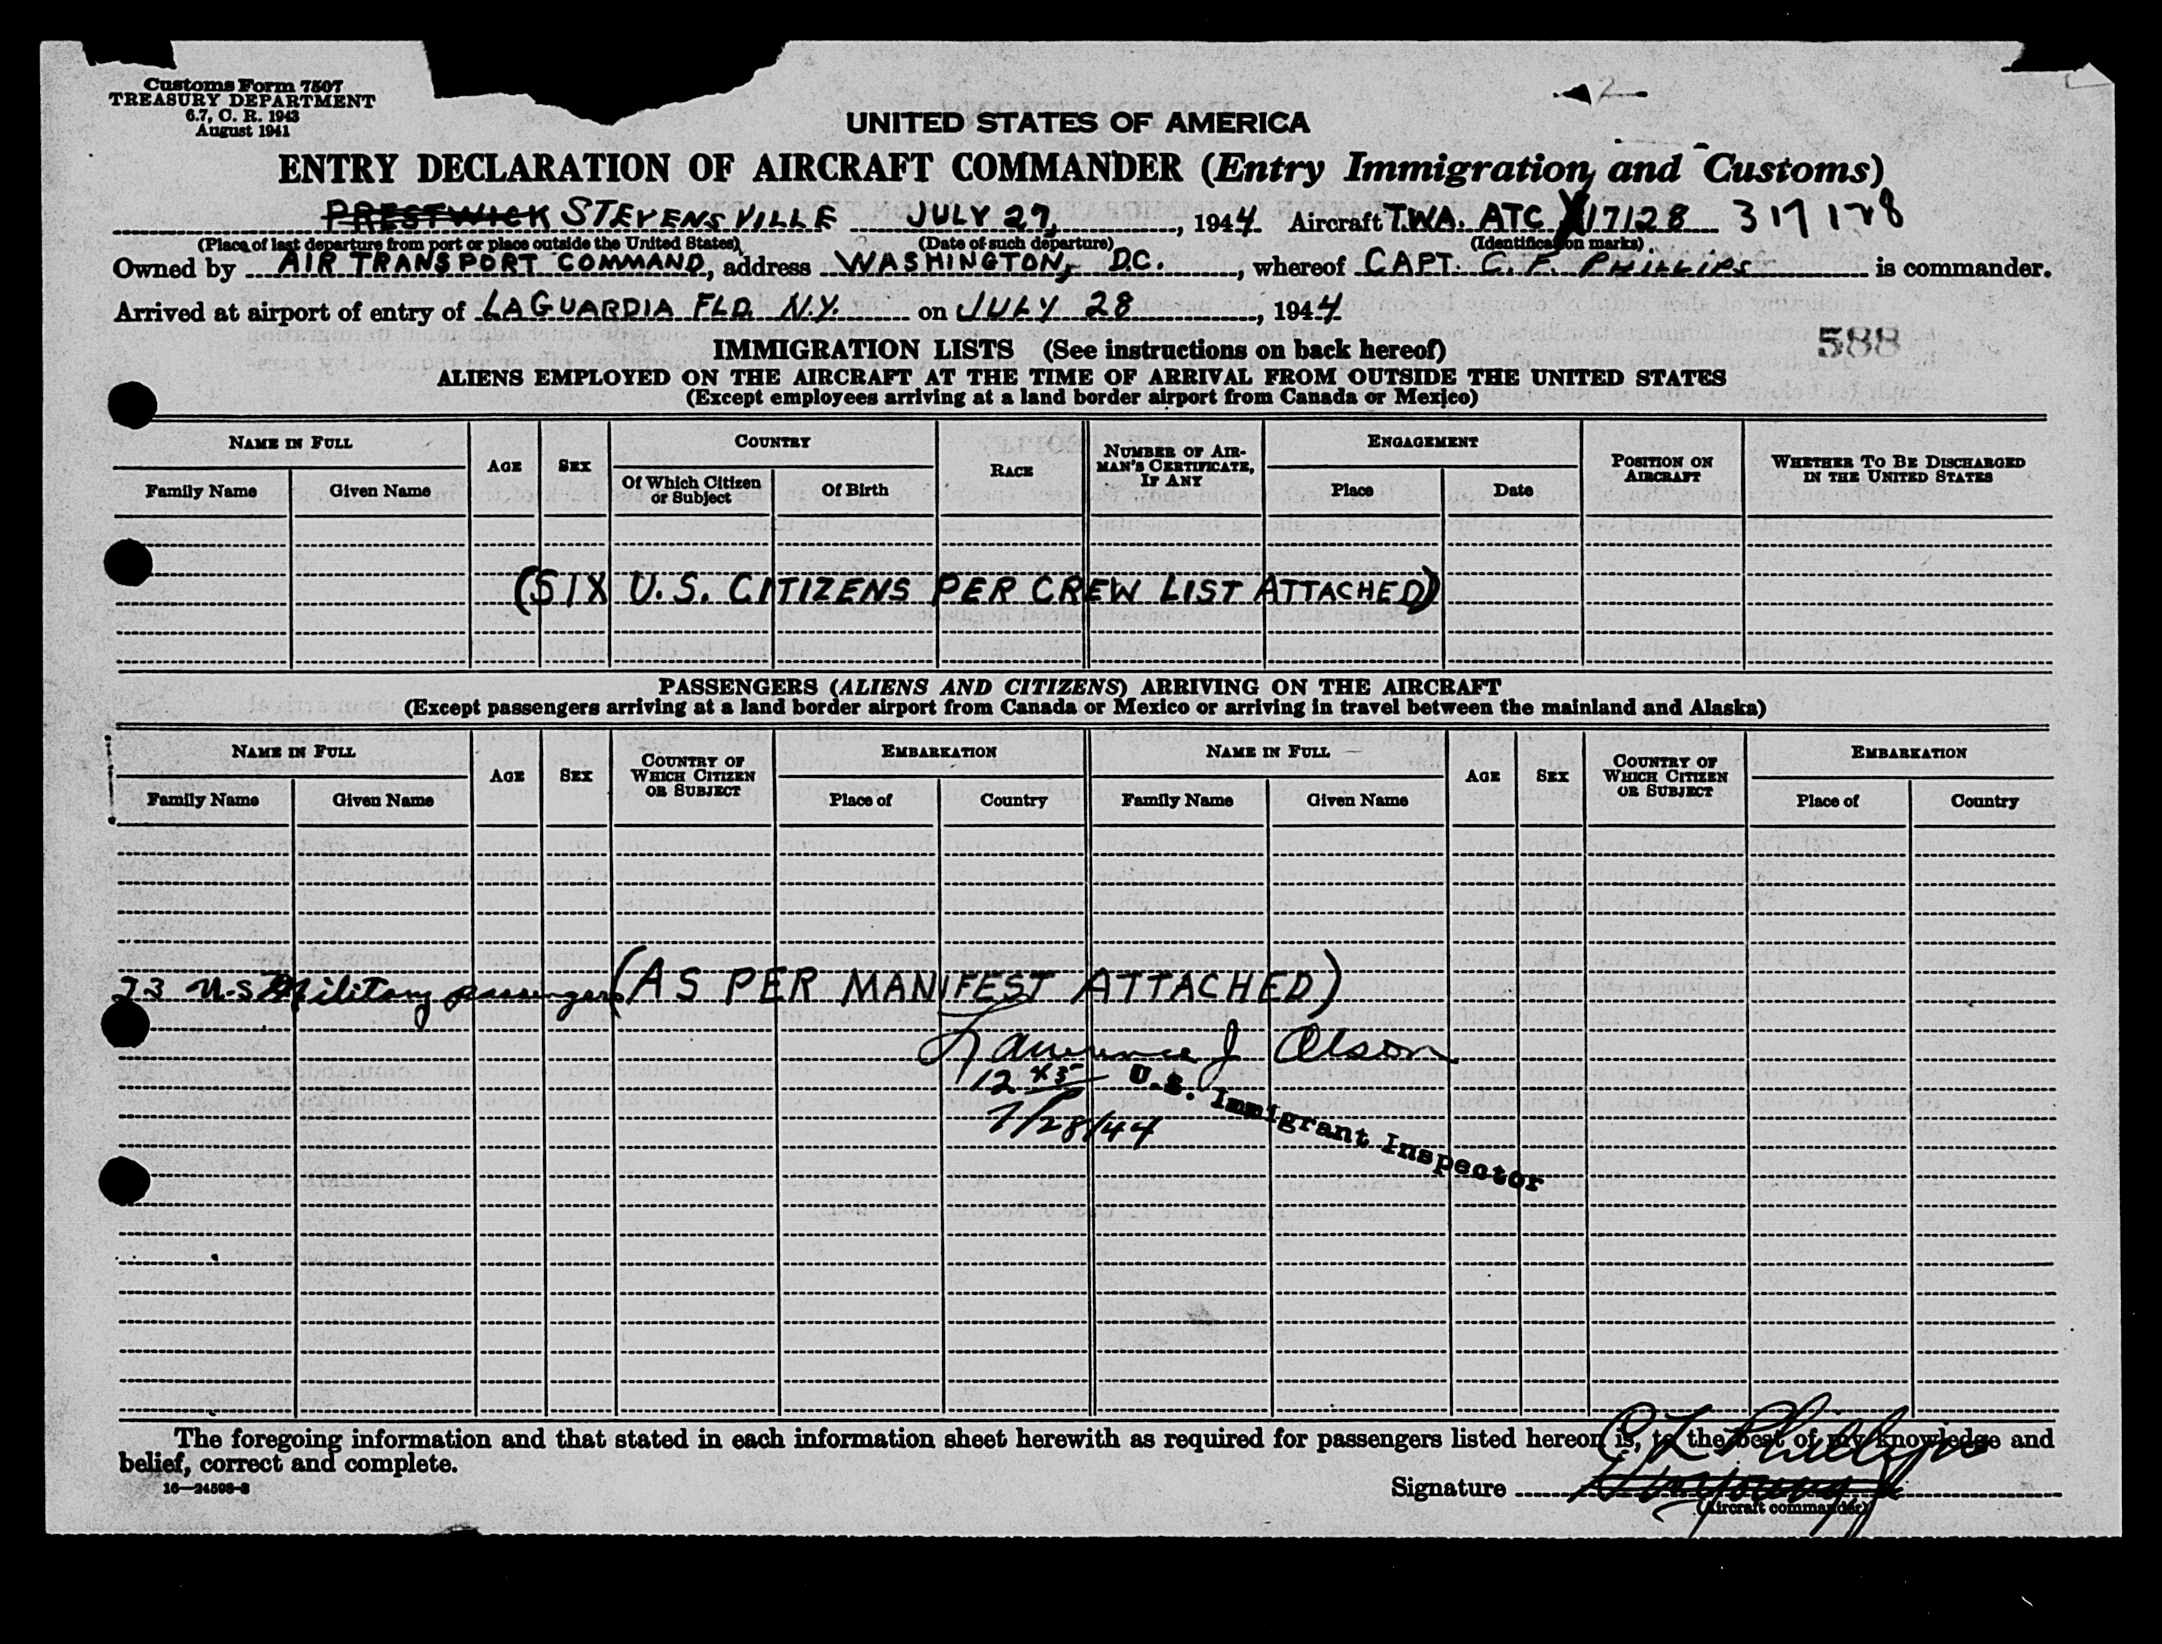 Customs Form 7507
TREASURY DEPARTMENT
6.7, C. R. 1943
August 1941
UNITED STATES OF AMERICA
ENTRY DECLARATION OF AIRCRAFT COMMANDER (Entry Immigration and Customs)
PRESTWICK STEVENSVILLE JULY 27, , 1944 Aircraft T.W.A. ATC 17128 317128
(Place of last departure from port or place outside the United States) (Date of such departure) (Identification marks)
Owned by AIR TRANSPORT COMMAND, address WASHINGTON, D.C. , whereof CAPT. C. F. PHILLIPS is commander.
Arrived at airport of entry of LAGUARDIA FLD. N.Y. on JULY 28 , 1944
588
IMMIGRATION LISTS (See instructions on back hereof)
ALIENS EMPLOYED ON THE AIRCRAFT AT THE TIME OF ARRIVAL FROM OUTSIDE THE UNITED STATES
(Except employees arriving at a land border airport from Canada or Mexico)
NAME IN FULL AGE SEX COUNTRY RACE NUMBER OF AIRMAN'S CERTIFICATE, IF ANY ENGAGEMENT POSITION ON AIRCRAFT WHETHER TO BE DISCHARGED IN THE UNITED STATES
Family Name Given Name Of Which Citizen or Subject Of Birth Place Date
(SIX U.S. CITIZENS PER CREW LIST ATTACHED)
PASSENGERS (ALIENS AND CITIZENS) ARRIVING ON THE AIRCRAFT
(Except passengers arriving at a land border airport from Canada or Mexico or arriving in travel between the mainland and Alaska)
NAME IN FULL AGE SEX COUNTRY OF WHICH CITIZEN OR SUBJECT EMBARKATION NAME IN FULL AGE SEX COUNTRY OF WHICH CITIZEN OR SUBJECT EMBARKATION
Family Name Given Name Place of Country Family Name Given Name Place of Country
23 U.S. Military passengers (AS PER MANIFEST ATTACHED)
Lawrence J Olson
12 45 U.S. Immigrant Inspector
7/28/44
The foregoing information and that stated in each information sheet herewith as required for passengers listed hereon is, to the best of my knowledge and
belief, correct and complete.
16—24598-2
C L Phillips
Signature
(Aircraft commander)